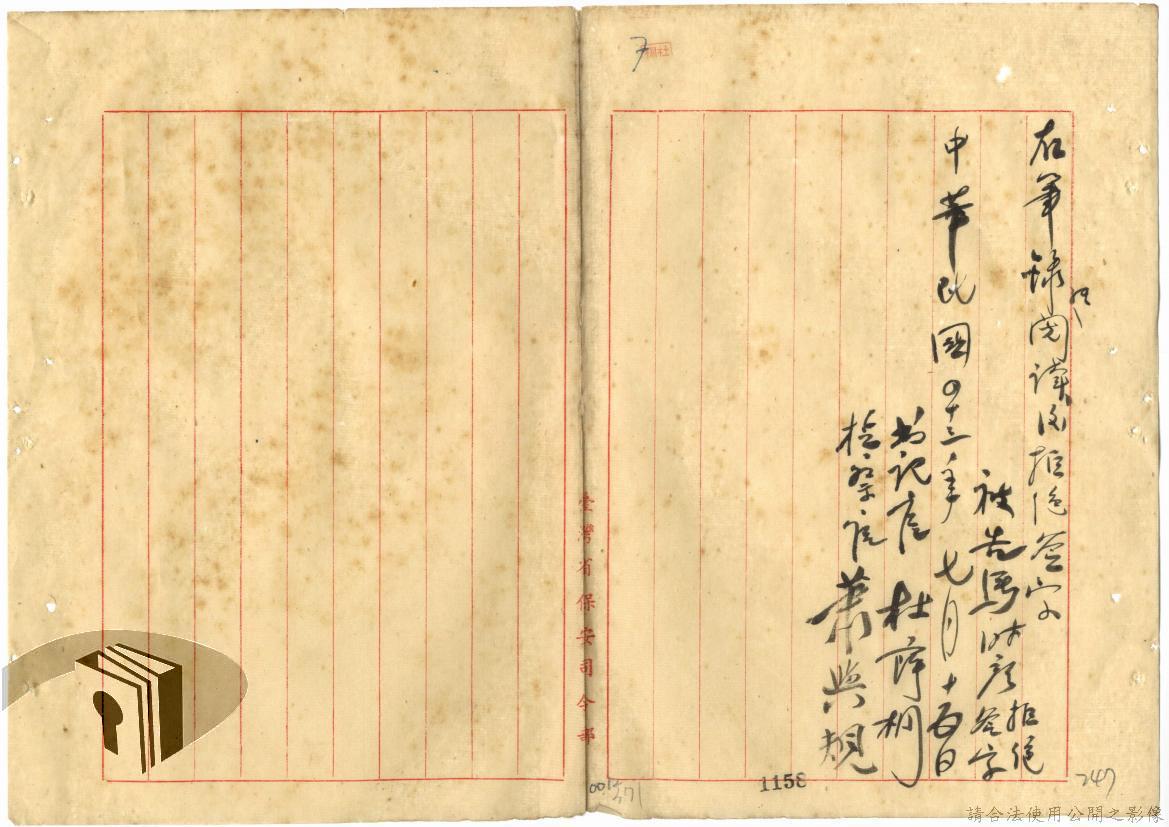 右筆錄經閱讀後拒絕簽字
被告馬時彥拒絕簽字
中華民國四十三年七月十五日
書記官 杜
檢察官 蕭與規
臺灣省保安司令部
1158
247
請合法使用公開之影像